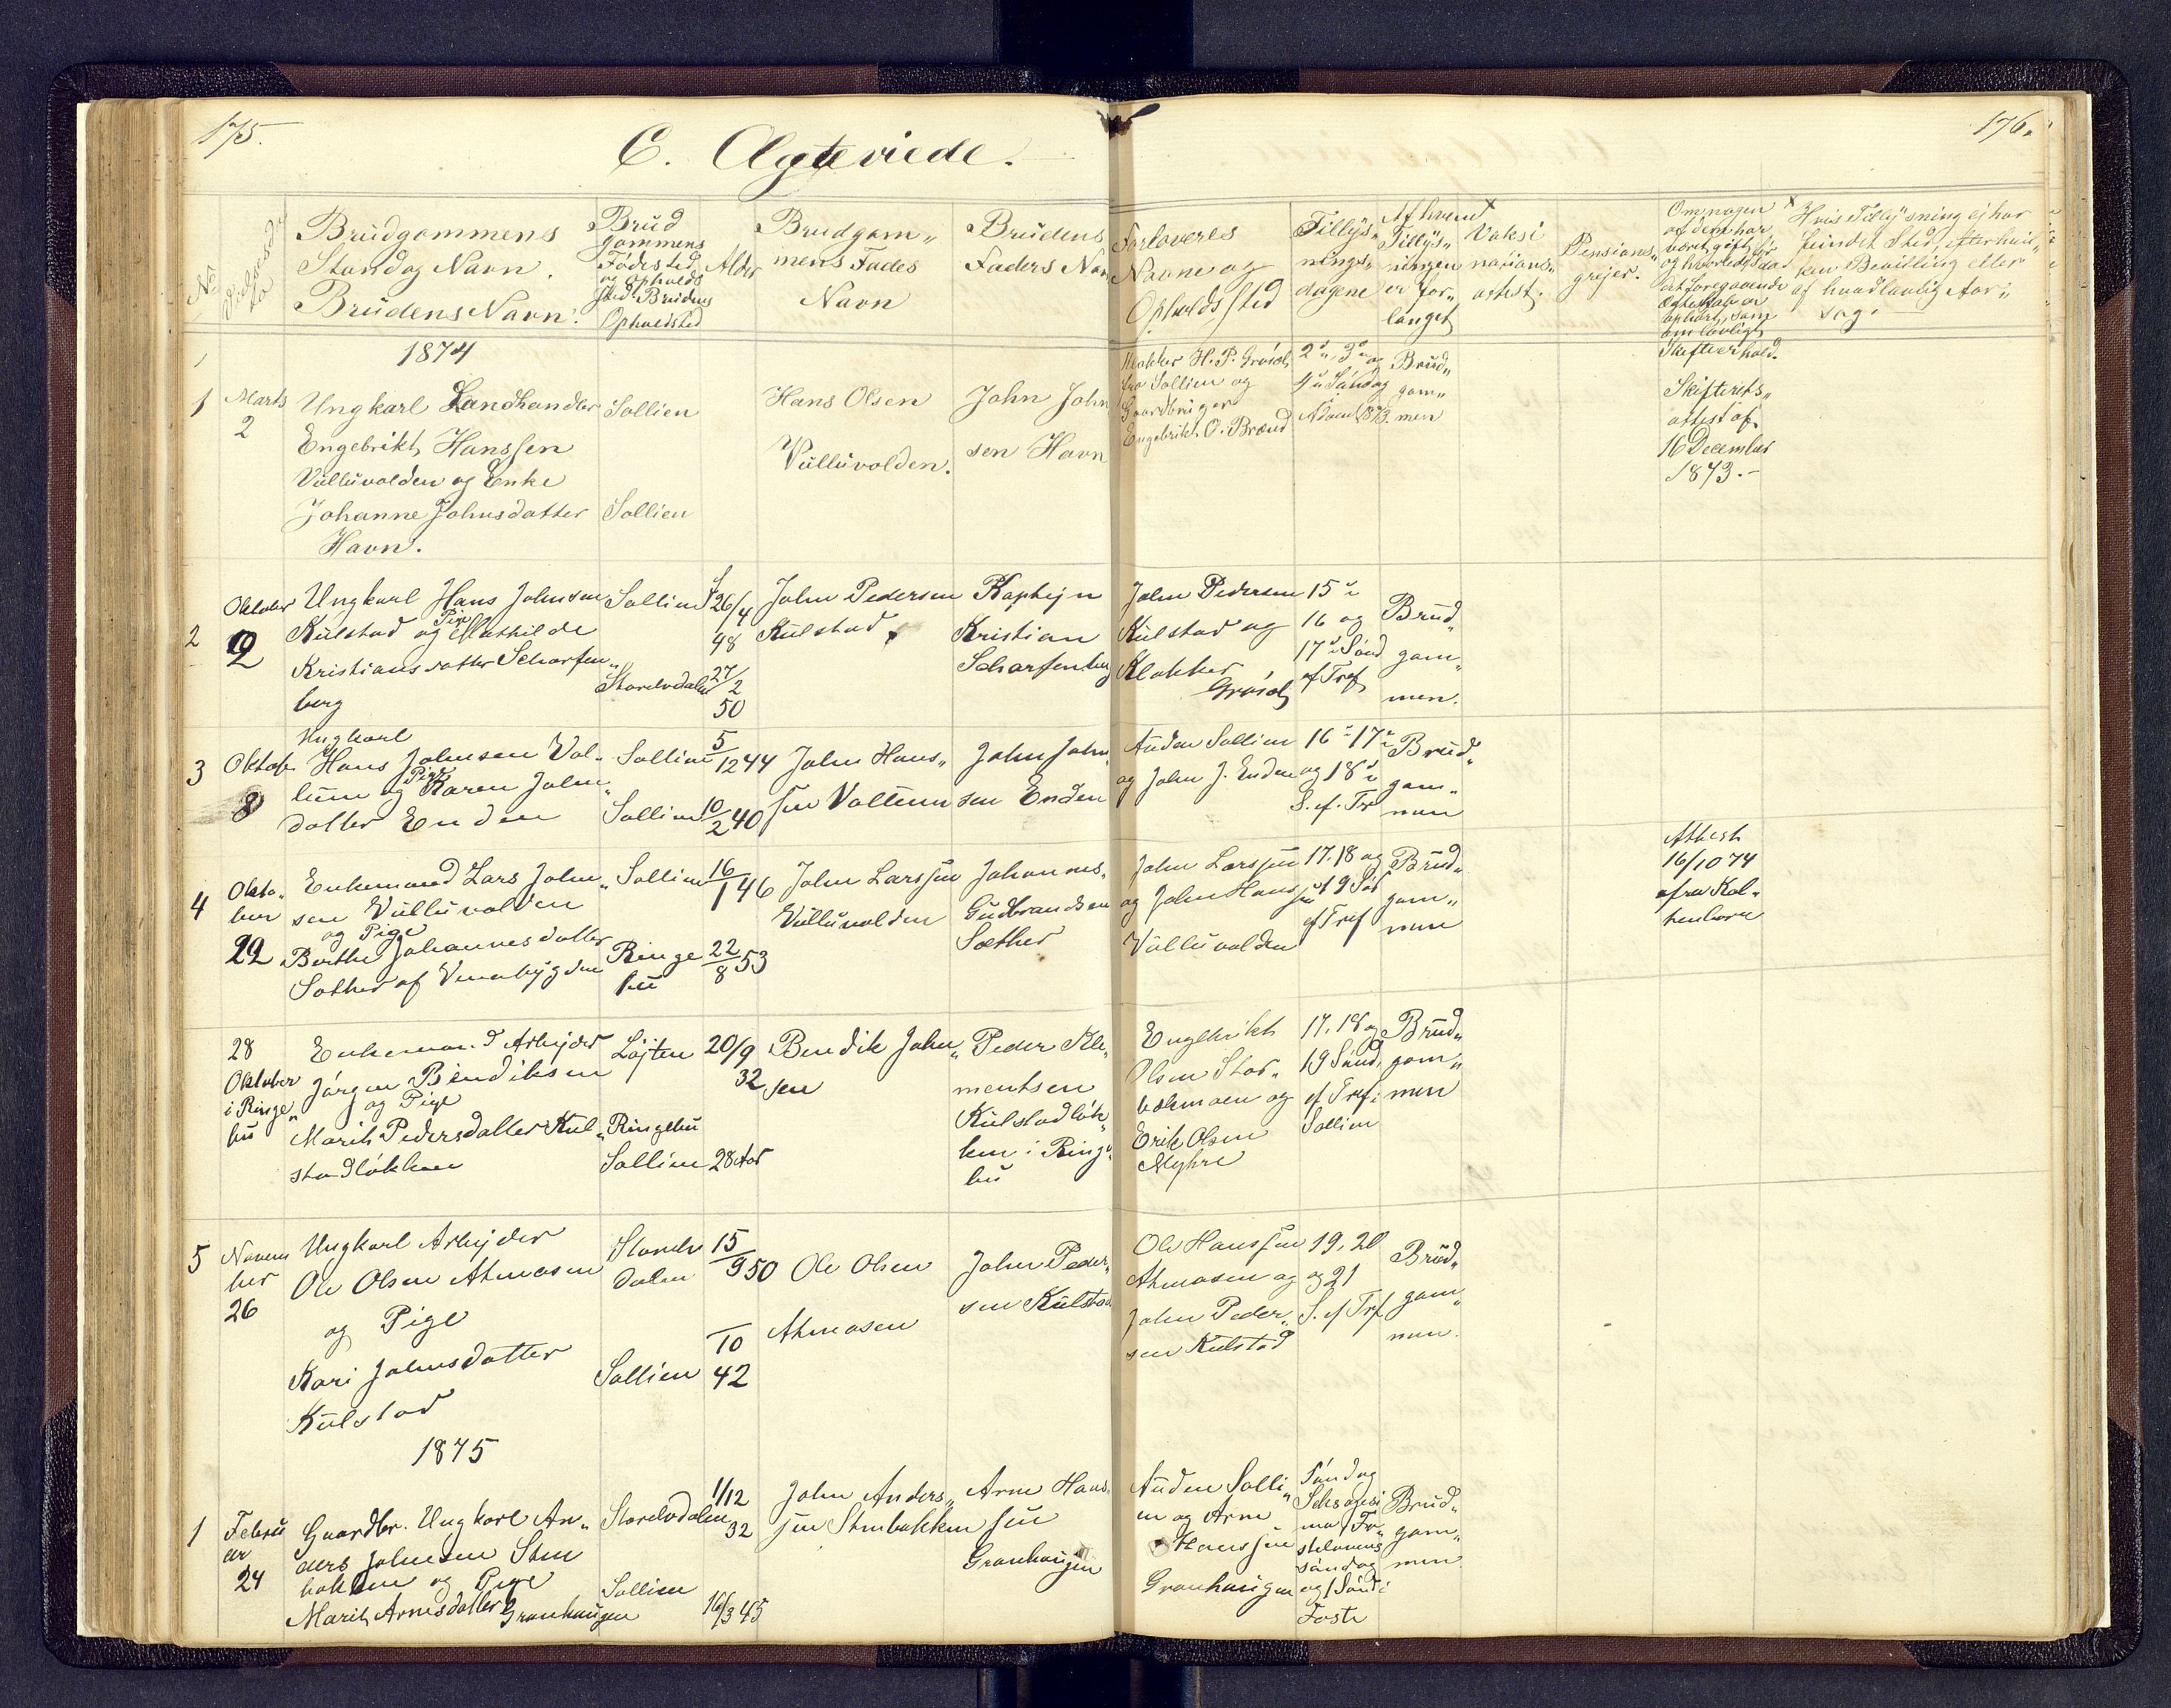 175.
C. Ægteviede.
176.
No
Vielses da
Brudgommens
Stand og Navn.
Brudens Navn.
Brud
gommens
Fødested
og opholds
sted. Brudens
Opholdsted
Alder
Brudgom„
mens Faders
Navn
Brudens
Faders Navn
Forloveres
Navne og
Opholdssted
Tillys„
nings„
dagene
Af hvem
Tillys„
ningen
er for„
langet
Vaksi
nations„
attest.
Pensions„
grejer.
Om nogen
af dem har
været gift før
og hvorledes da
det foregaaende
Ægteskab er
ophørt, samt
om lovligt
Skifte er hold.
Hvis Tillysning ej har
fundet Sted, efter hvil„
ken Bevilling eller
af hvad lovlig Aar„
sag.
1874
1
Marts
2
Ungkarl Landhandler
Engebrikt Hanssen
Vulluvolden og Enke
Johanne Johnsdatter
Havn.
Sollien
Sollien
Hans Olsen
Vulluvolden.
John John
sen Havn
Klokker H. P. Grøsch
fra Sollien og
Gaardbruger
Engebrikt O. Brænd
2den, 3die og
4de Søndag
i Advent 1873.
Brud„
gom„
men
Skifterets„
attest af
16 December
1873.-
2
Oktober
2
Ungkarl Hans Johnsen
Kulstad og Pige Mathilde
Kristiansdatter Scharfen„
berg
Sollien
Storelvdalen
26/4
48
27/2
50
John Pedersen
Kulstad
Kaptejn
Kristian
Scharfenberg
John Pedersen
Kulstad og
Klokker
Grøsch
15de
16 og
17de Sønd
ef Tref
Brud„
gom„
men.
3
Oktob
8
Ungkarl
Hans Johnsen Vol„
lum og Pige Karen John„
datter Enden
Sollien
Sollien
5/12 44
10/2 40
John Hans„
sen Vollum
John John„
sen Enden
Auden Sollien
og John J. Enden
16de 17de
og 18de
S. ef. Tr
Brud„
gom„
men
4
Okto„
ber
22
Enkemand Lars John„
sen Vulluvolden
og Pige
Berthe Johannesdatter
Sæther af Venebygden
Sollien
Ringe
bu
16/1 46
22/8 53
John Larssen
Vulluvolden
Johannes„
Gudbrandsen
Sæther
John Larssen
og John Hans sen
Vulluvolden
17. 18 og
19 Søn
ef Tref
Brud„
gom„
men
Attest
16/10 74
fra Kal„
henborn
28
Oktober
i Ringe„
bu
Enkemand Arbejder
Jørgen Bendiksen
og Pige
Marit Pedersdatter Kul„
stadløkken
Løjten
Ringebu
Sollien
20/9
32
28 Aar
Bendik John„
sen
Peder Kle„
mentsen
Kulstadløk„
ken i Ringe„
bu
Engebrikt
Olsen Stor„
bekmoen og
Erik Olsen
Myhre
17. 18 og
19 Sønd.
ef Tref i
Sollien
Brud„
gom„
men
5
Novem
ber
26
Ungkarl Arbejder
Ole Olsen Atnaosen
og Pige
Kari Johnsdatter
Kulstad
Storelv
dalen
Sollien
15/9 50
/10
42
Ole Olsen
Atnaosen
John Peder„
sen Kulstad
Ole Hanssen
Atnaosen og
John Peder„
sen Kulstad
19, 20
og 21
S. ef Tref
Brud„
gom„
men.
1875
1
Febru
ar
24
Gaardbr. Ungkarl An„
ders Johnsen Sten
bakken og Pige
Marit Arnesdatter Granhaugen
Storelvdalen
Sollien
1/12
32
16/3 45
John Anders„
sen Stenbakken
Arne Hans„
sen
Granhaugen
Auden Solli„
en og Arne
Hanssen
Granhaugen
Søndag
Seksagesi
ma, Fa„
stelavns
søndag
og 1 Sønd i
Faste
Brud„
gom„
men